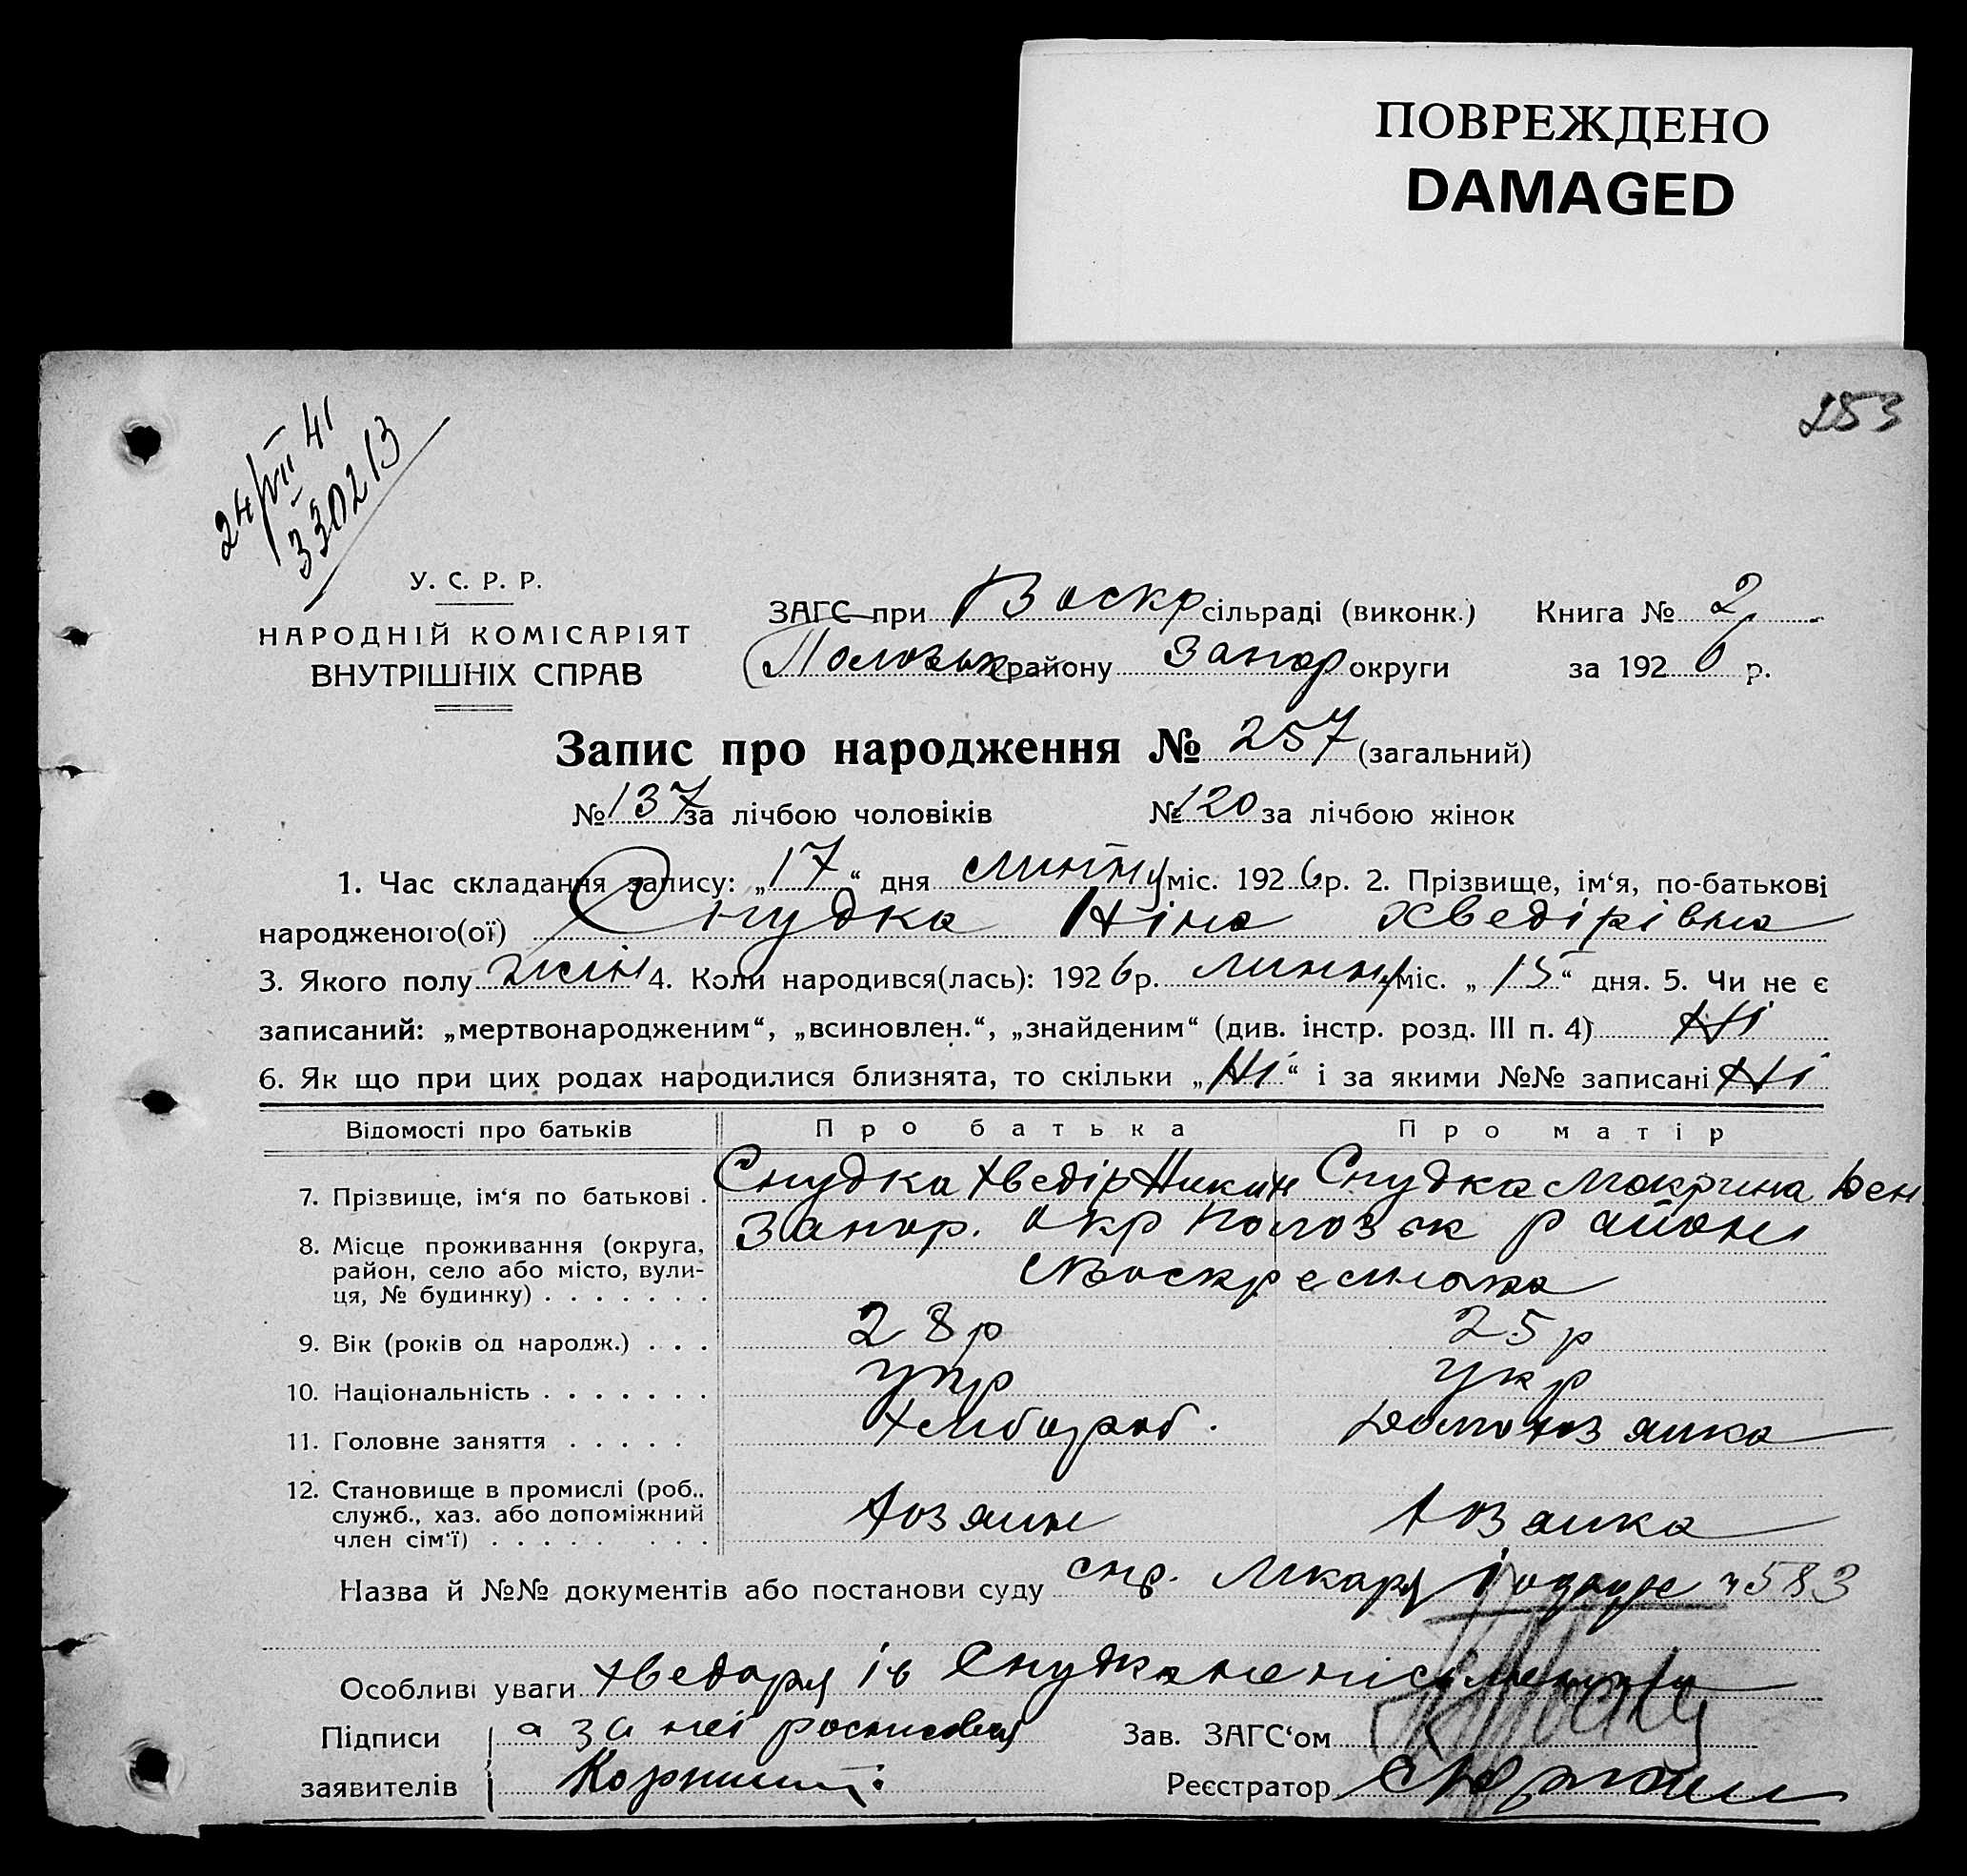 ПОВРЕЖДЕНО
DAMAGED
253
24/VII 41
330213
У. С. Р. Р.
НАРОДНІЙ КОМІСАРІЯТ
ВНУТРІШНІХ СПРАВ
ЗАГС при Воскр сільраді (виконк.) Книга № 2
Полозьк району Запор округи за 1926 р.
Запис про народження № 257 (загальний)
№ 137 за лічбою чоловіків № 120 за лічбою жінок
1. Час складання запису: „17“ дня липня міс. 1926 р. 2. Прізвище, ім‘я, по-батькові
народженого(ої) Снудка Ніна Хведірівна
3. Якого полу жін 4. Коли народився(лась): 1926 р. липня міс. „15“ дня. 5. Чи не є
записаний: „мертвонародженим“, „всиновлен.“, „знайденим“ (див. інстр. розд. III п. 4) Ні
6. Як що при цих родах народилися близнята, то скільки „Ні“ і за якими №№ записані Ні
Відомості про батьків Про батька Про матір
7. Прізвище, ім‘я по батькові . Снудка Хведір Никин Снудка Мокрина
8. Місце проживання (округа, Запор. окр Полозьк район
район, село або місто, вули-
ця, № будинку) . . . . . . .
9. Вік (років од народж.) . . . 28 р 25 р
10. Національність . . . . . . . укр укр
11. Головне заняття . . . . . Хлібороб. Домохозяйка
12. Становище в промислі (роб..
служб., хаз. або допоміжний Хозяин Хозяйка
член сім‘ї) . . . . . . . .
Назва й №№ документів або постанови суду спр. лікаря 583
Особливі уваги Хведора Снудка неписьменна
Підписи а за неї росписався Зав. ЗАГС‘ом
заявителів Реєстратор